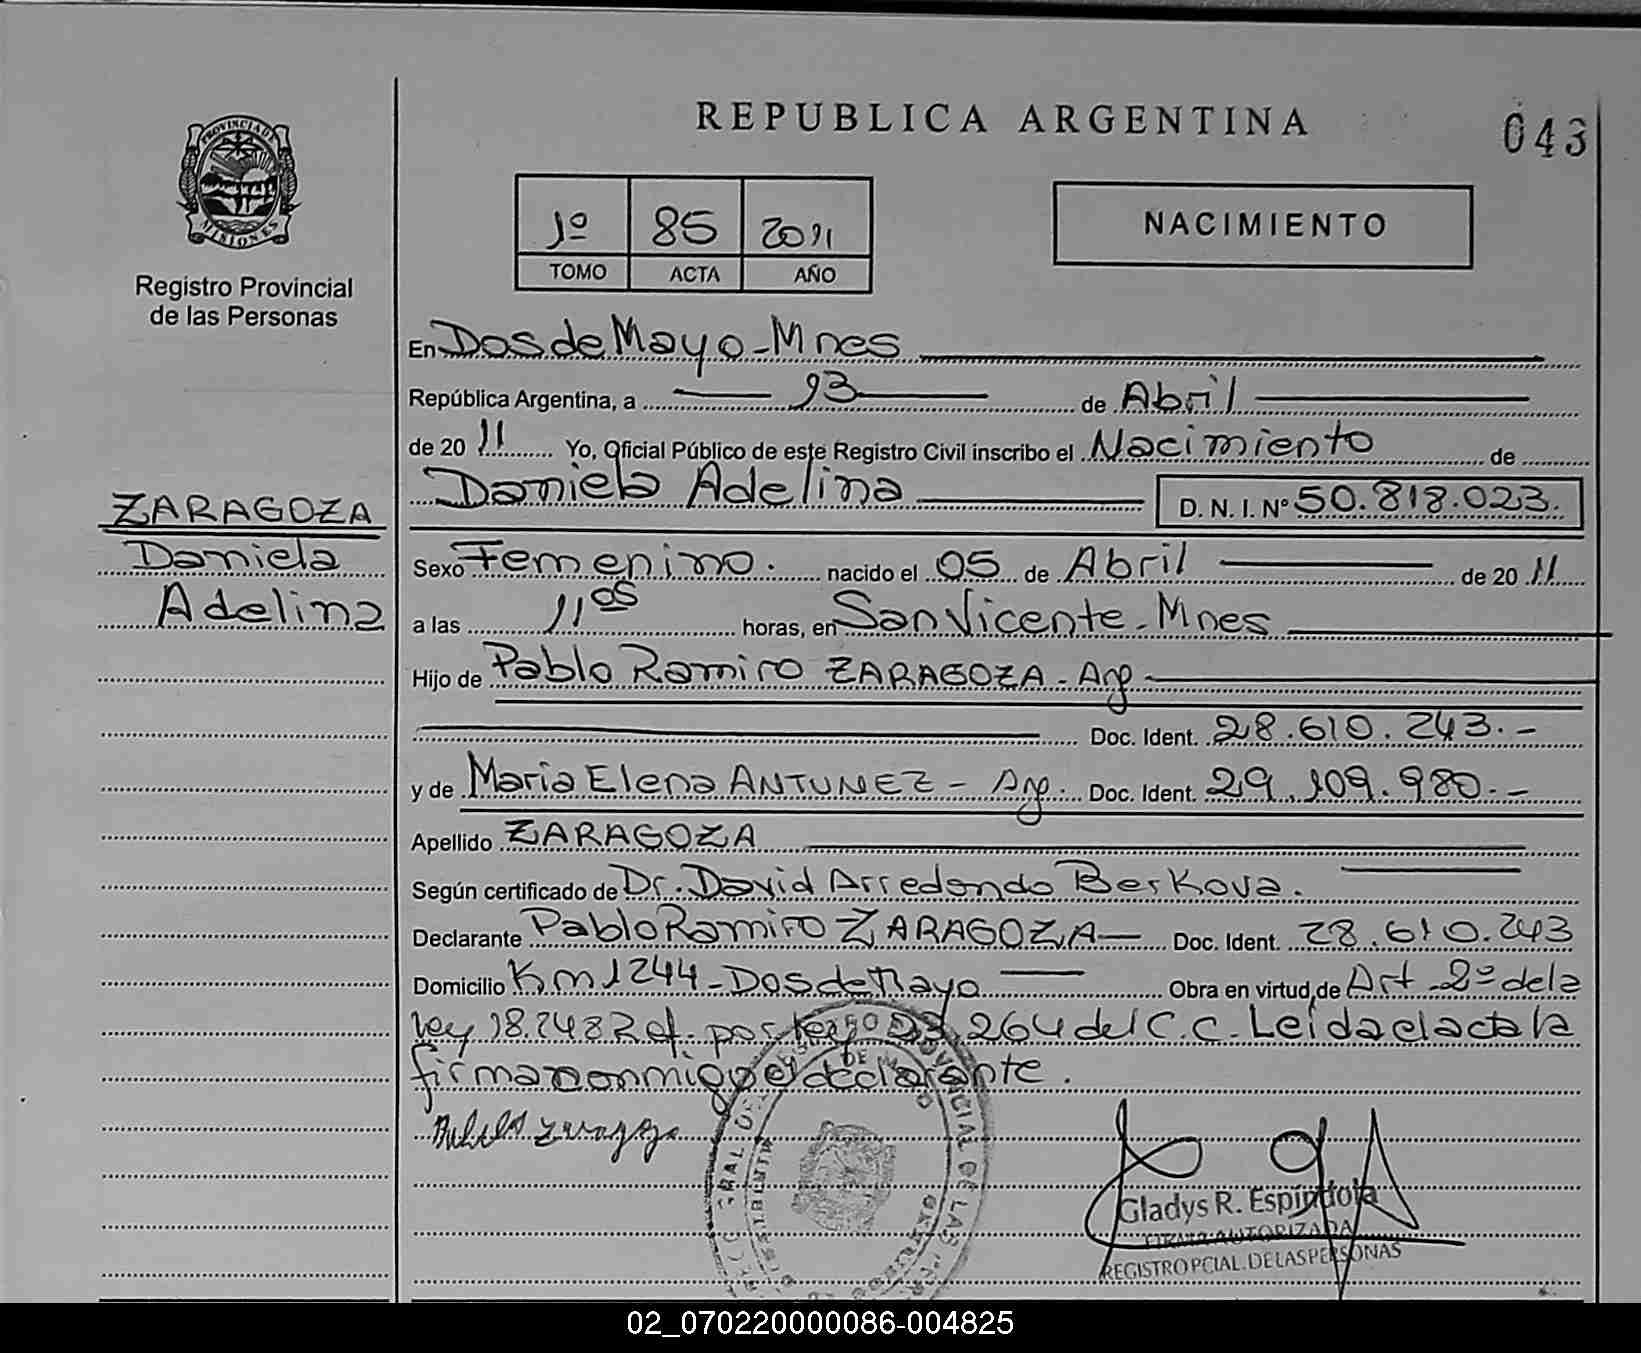 REPUBLICA ARGENTINA
043
PROVINCIA DE MISIONES
Registro Provincial
de las Personas
1º 85 2011
TOMO ACTA AÑO
NACIMIENTO
En Dos de Mayo - Mnes
República Argentina, a 13 de Abril
de 20 11 Yo, Oficial Público de este Registro Civil inscribo el Nacimiento de
Daniela Adelina D. N. I. Nº 50.818.023.
ZARAGOZA
Daniela
Adelina
Sexo Femenino. nacido el 05 de Abril de 20 11
a las 11 05 horas, en San Vicente - Mnes
Hijo de Pablo Ramiro ZARAGOZA - Arg
Doc. Ident. 28.610.243.-
y de Maria Elena ANTUNEZ - Arg. Doc. Ident. 29.109.980.-
Apellido ZARAGOZA
Según certificado de Dr. David Arredondo Berkova.
Declarante Pablo Ramiro ZARAGOZA - Doc. Ident. 28.610.243
Domicilio Km 1244 - Dos de Mayo Obra en virtud de Art. 2º de la
Ley 18.248 Ref. por 264 del C.C. Leida el acta la
firma conmigo el declarante.
Zaragoza
Gladys R. Espindola
FIRMA AUTORIZADA
REGISTRO PCIAL. DE LAS PERSONAS
02_070220000086-004825